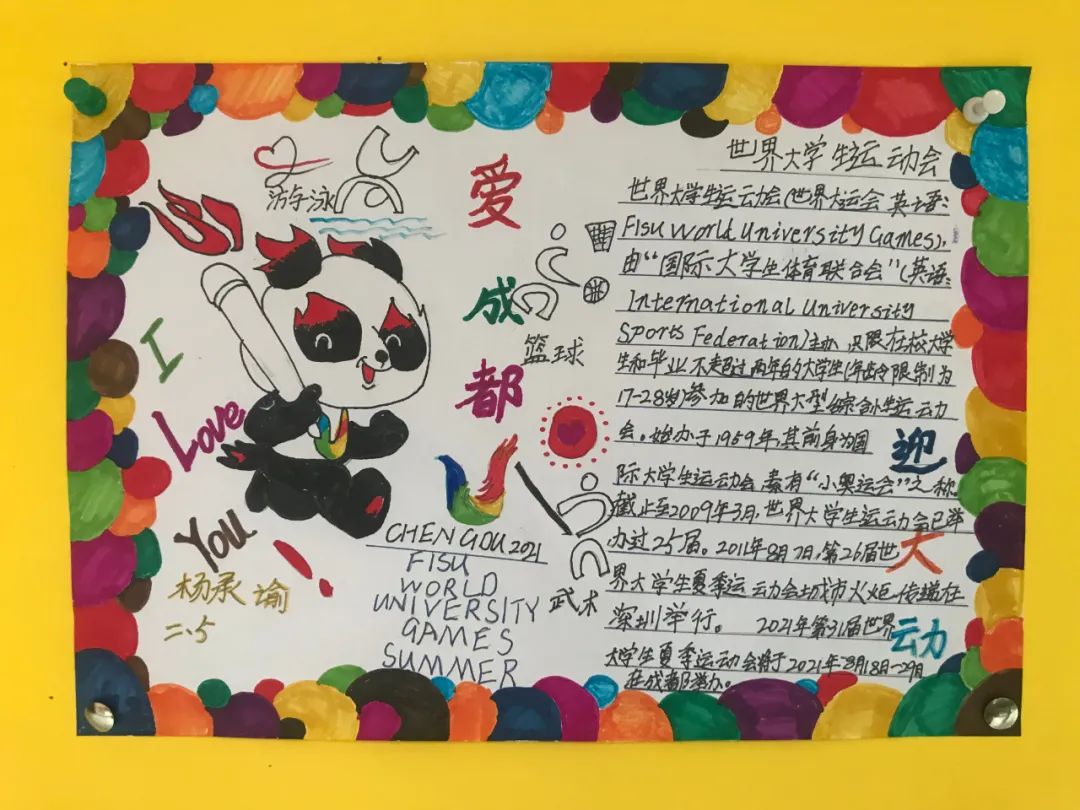 游泳
爱
成
都
篮球
I
Love
You
!
杨承谕
二.5
CHENGDU 2021
FISU
WORLD
UNIVERSITY
GAMES
SUMMER
武术
世界大学生运动会
世界大学生运动会(世界大运会 英语:
FISU World University Games),
由“国际大学生体育联合会”(英语:
International University
Sports Federation)主办 只限在校大学
生和毕业不超过两年的大学生(年龄限制为
17-28岁)参加的世界大型综合性运动
会。始办于1959年,其前身为国
际大学生运动会 素有“小奥运会”之称。
截止至2009年3月,世界大学生运动会已举
办过25届。2011年8月 , 第26届世
界大学生夏季运动会城市火炬传递在
深圳举行。 2021年第31届世界
大学生夏季运动会将于2021年8月18日-29日
在成都举办。
迎
大
运